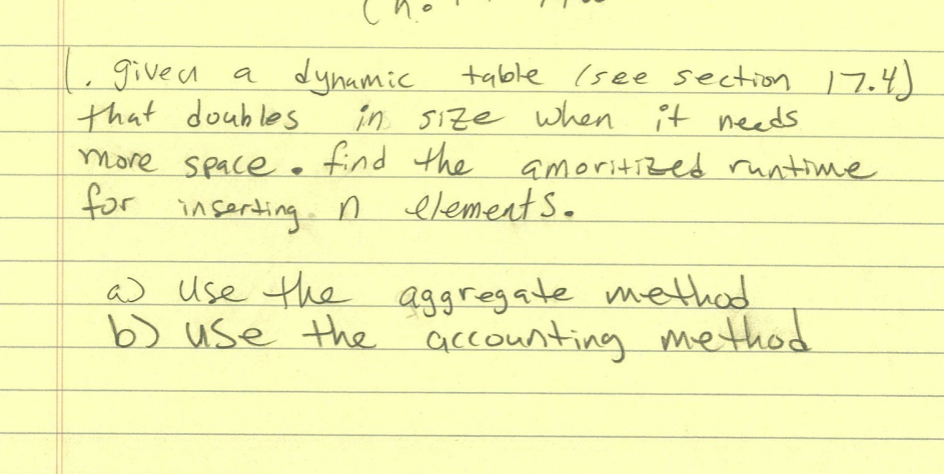 1. given a dynamic table (see section 17.4)
that doubles in size when it needs
more space. find the amoritized runtime
for inserting n elements.
a) Use the aggregate method
b) use the accounting method